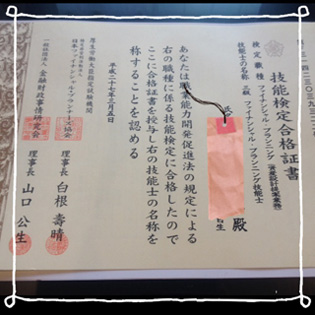 技能検定合格証書
検定職種 ファイナンシャル・プランニング(資産設計提案業務)
技能士の名称 二級 ファイナンシャル・プランニング技能士
殿
あなたは職業能力開発促進法の規定による
右の職種に係る技能検定に合格したので
ここに合格証書を授与し右の技能士の名称を
称することを認める
平成二十七年三月五日
厚生労働大臣指定試験機関
日本ファイナンシャル・プランナーズ協会
理事長 白根壽晴
一般社団法人 金融財政事情研究会
理事長 山口公生